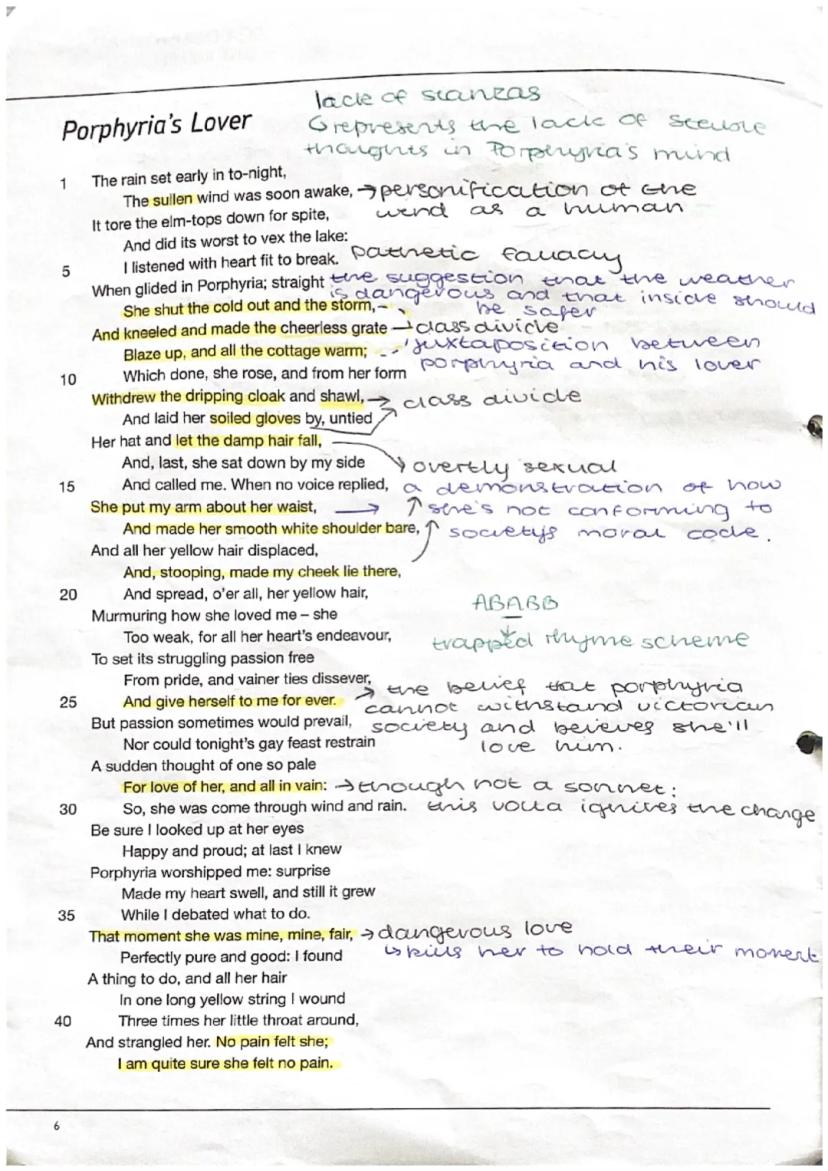 lack of stanzas
↳represents the lack of
thoughts in Porphyria's mind
Porphyria's Lover
1 The rain set early in to-night,
The sullen wind was soon awake, →personification of the
wind as a human
It tore the elm-tops down for spite,
And did its worst to vex the lake:
5 I listened with heart fit to break. pathetic fallacy
When glided in Porphyria; straight the suggestion that the weather
is dangerous and that inside should
She shut the cold out and the storm, be safer
And kneeled and made the cheerless grate →class divide
Blaze up, and all the cottage warm; juxtaposition between
porphyria and his lover
10 Which done, she rose, and from her form
Withdrew the dripping cloak and shawl, → class divide
And laid her soiled gloves by, untied
Her hat and let the damp hair fall,
And, last, she sat down by my side overtly sexual
15 And called me. When no voice replied, a demonstration of how
She put my arm about her waist, → she's not conforming to
And made her smooth white shoulder bare, societys moral code.
And all her yellow hair displaced,
And, stooping, made my cheek lie there,
20 And spread, o'er all, her yellow hair,
ABABB
Murmuring how she loved me – she
Too weak, for all her heart's endeavour,
trapped rhyme scheme
To set its struggling passion free
From pride, and vainer ties dissever,
25 And give herself to me for ever. → the belief that porphyria
cannot withstand victorian
But passion sometimes would prevail, society and believes she'll
Nor could tonight's gay feast restrain love him.
A sudden thought of one so pale
For love of her, and all in vain: →though not a sonnet:
30 So, she was come through wind and rain. this volta ignives the change
Be sure I looked up at her eyes
Happy and proud; at last I knew
Porphyria worshipped me: surprise
Made my heart swell, and still it grew
35 While I debated what to do.
That moment she was mine, mine, fair, →dangerous love
Perfectly pure and good: I found ↳kills her to hold their moment
A thing to do, and all her hair
In one long yellow string I wound
40 Three times her little throat around,
And strangled her. No pain felt she;
I am quite sure she felt no pain.
6